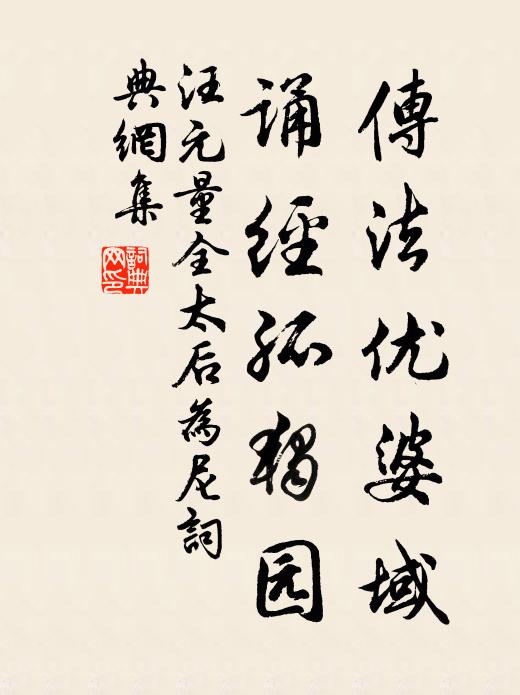 傳法优婆域
诵經孤獨园
汪元量全太后為尼詞
典網集
詞典網印